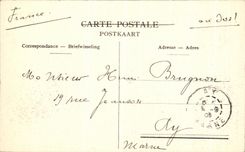 France
CARTE POSTALE
POSTKAART
Correspondance — Briefwisseling
Adresse — Adres
Monsieur Henri Brugnon
19 rue Jeanson
Ay
Marne
AY
MARNE